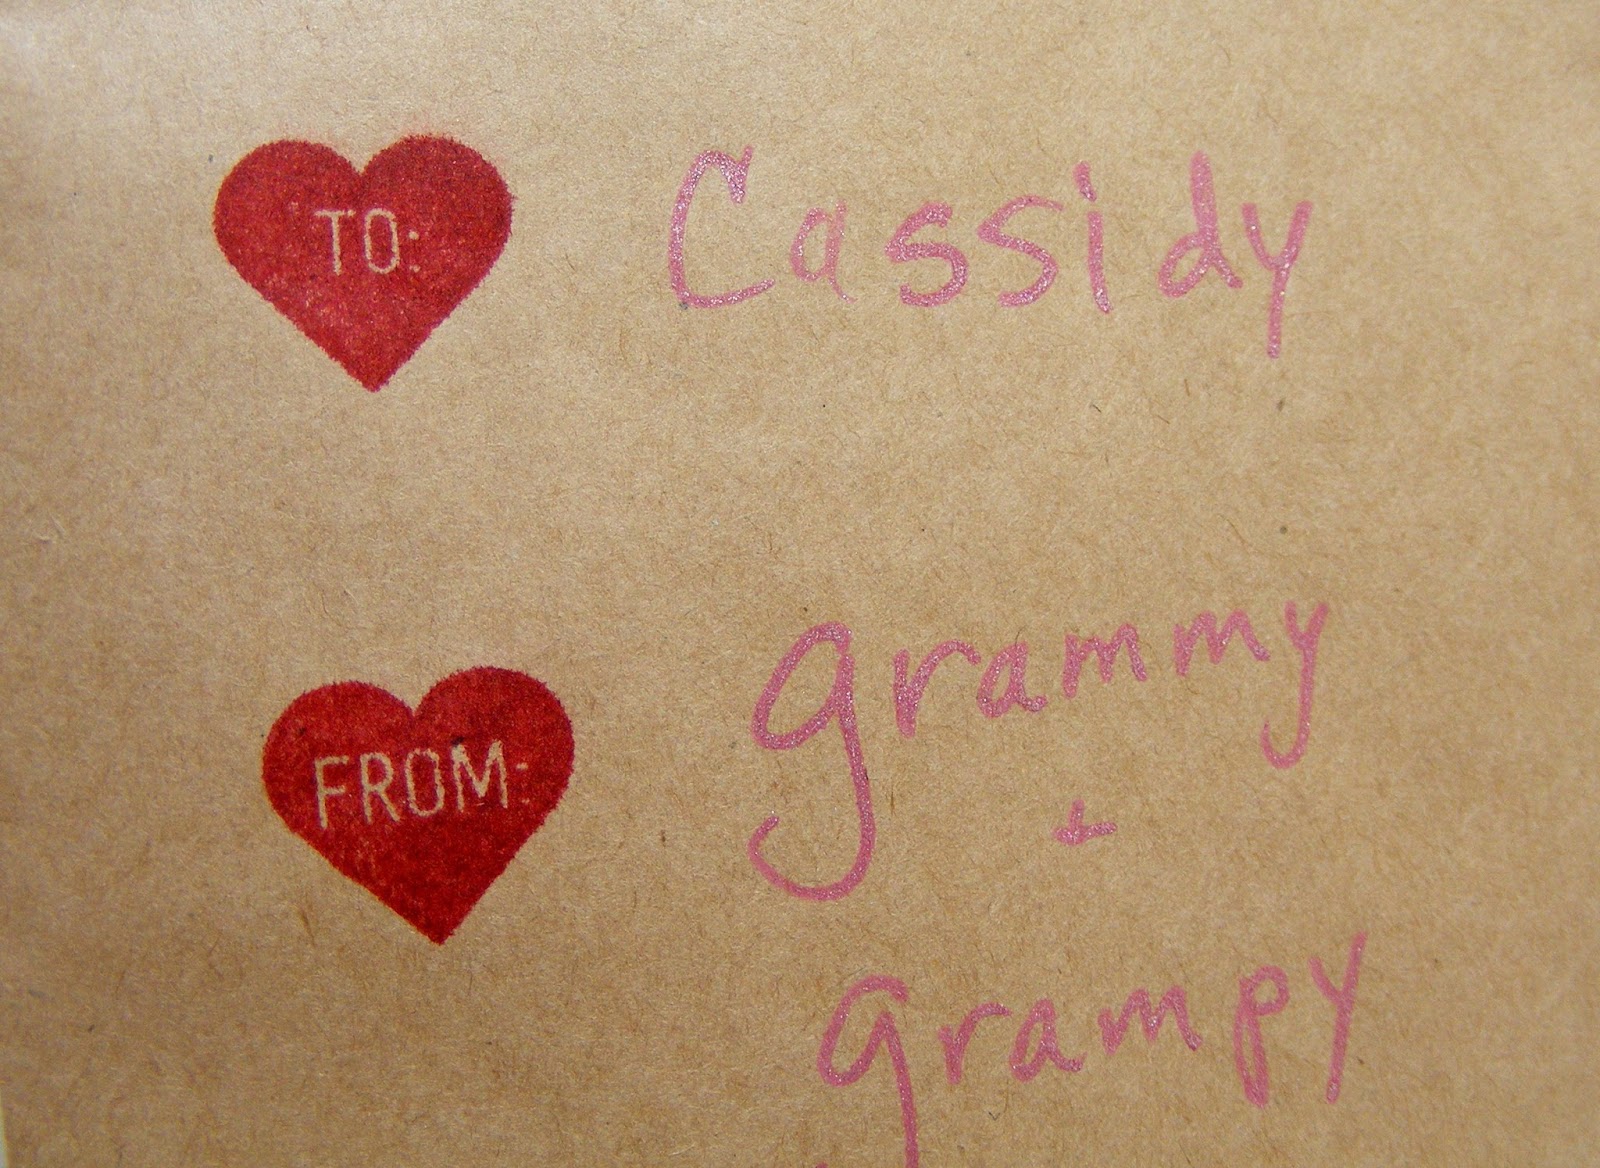 TO: Cassidy
FROM: grammy
+
grampy